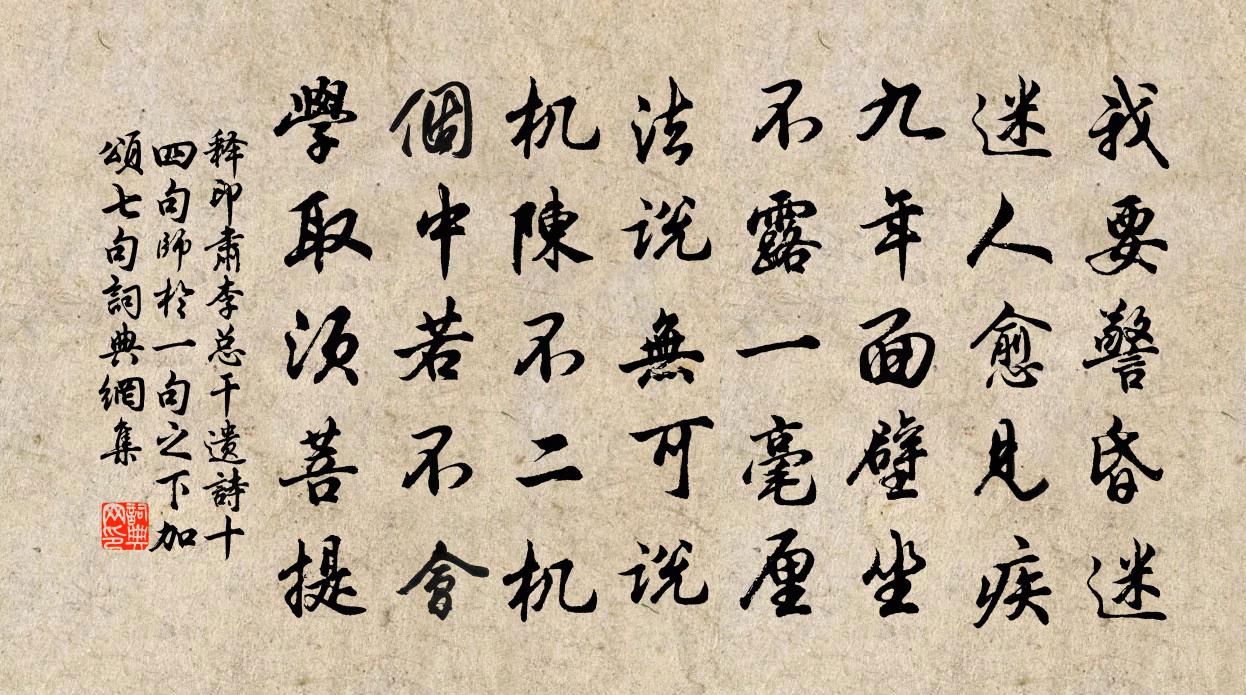 我要警昏迷
迷人愈見疾
九年面壁坐
不露一毫厘
法说無可说
机陳不二机
個中若不會
學取须菩提
释印肃李总干遗詩十
四句师於一句之下加
頌七句詞典網集
詞典网印